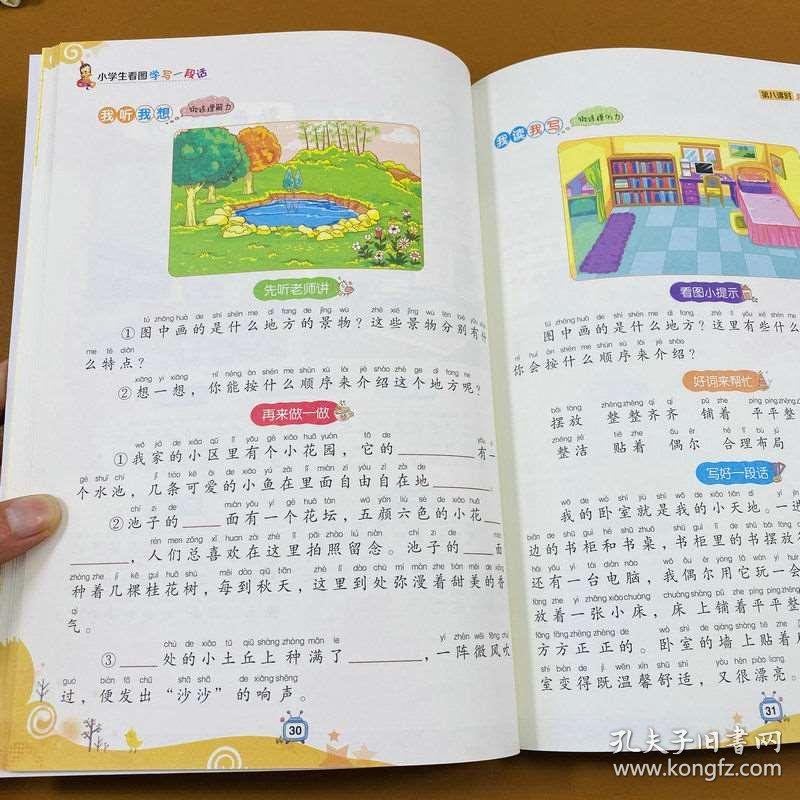 小学生看图学写一段话
我听我想
先听老师讲
①图中画的是什么地方的景物？这些景物分别有什
么特点？
②想一想，你能按什么顺序来介绍这个地方呢？
再来做一做
①我家的小区里有个小花园，它的________有一
个水池，几条可爱的小鱼在里面自由自在地________
②池子的____面有一个花坛，五颜六色的小花
________，人们总喜欢在这里拍照留念。池子的____面
种着几棵桂花树，每到秋天，这里到处弥漫着甜美的香
气。
③____处的小土丘上种满了________，一阵微风吹
过，便发出“沙沙”的响声。
30
第八课时
我读我写
看图小提示
图中画的是什么地方？这里有些什么
你会按什么顺序来介绍？
好词来帮忙
摆放 整整齐齐 铺着 平平整
整洁 贴着 偶尔 合理布局
写好一段话
我的卧室就是我的小天地。一进
边的书柜和书桌，书柜里的书摆放得
还有一台电脑，我偶尔用它玩一会
放着一张小床，床上铺着平平整
方方正正的。卧室的墙上贴着
室变得既温馨舒适，又很漂亮。
31
孔夫子旧书网
www.kongfz.com